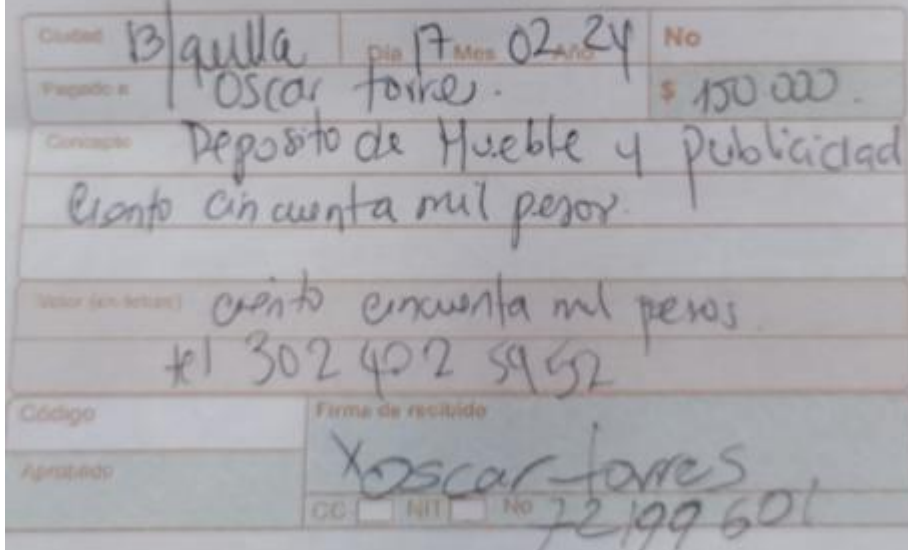 Ciudad B/quilla Día 17 Mes 02 Año 24 No
Pagado a Oscar torre. $ 150 000.
Concepto Deposito de Mueble y publicidad
Ciento cincuenta mil pesos.
Valor (en letras) ciento cincuenta mil pesos
tel 302 402 5952
Código Firma de recibido
Aprobado X oscar torres
CC NIT No 72199601